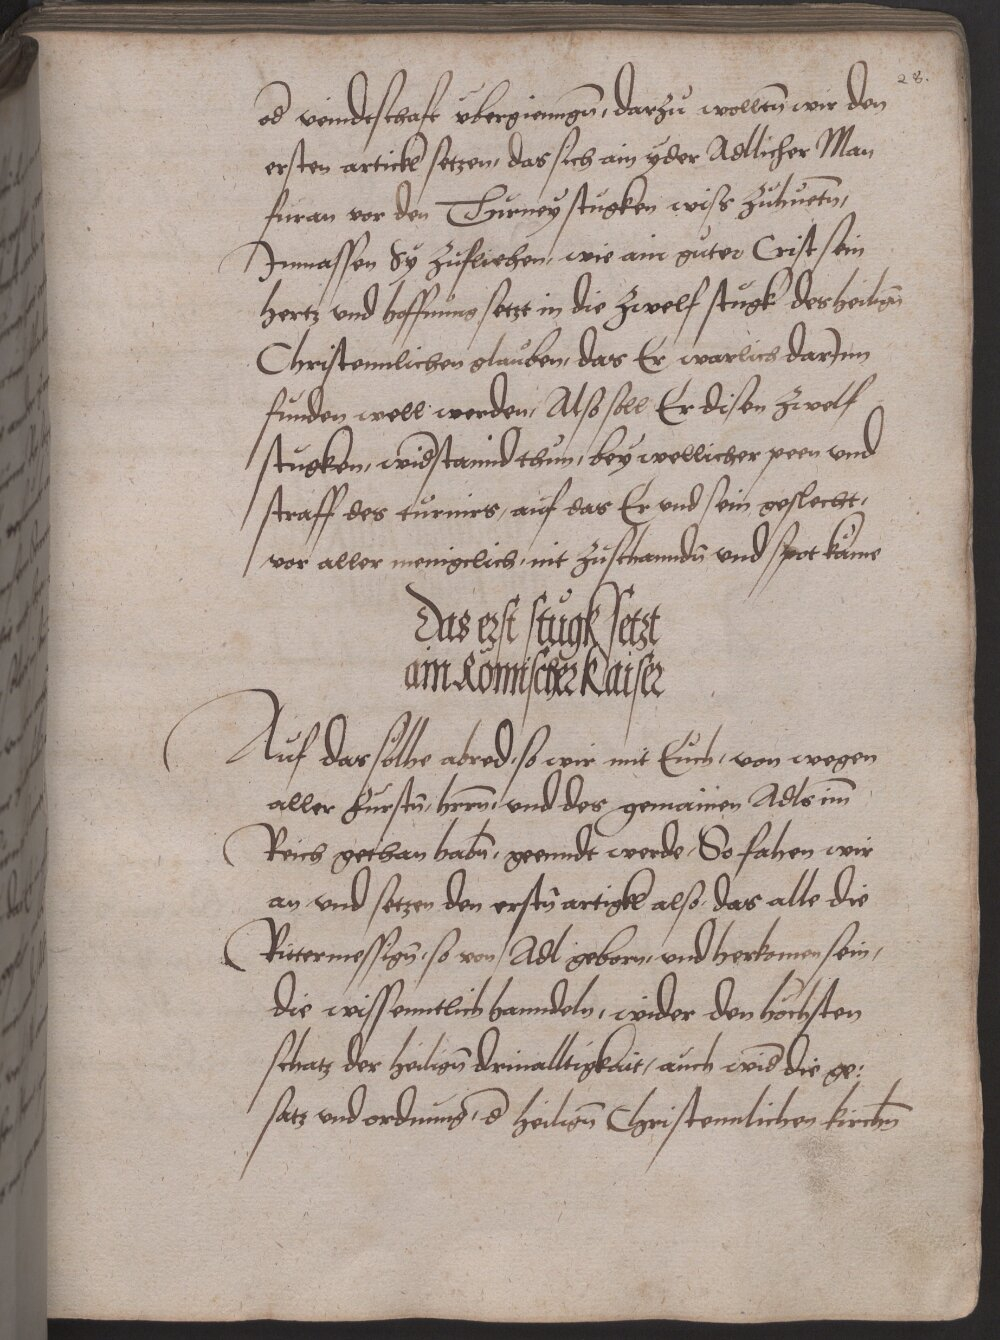 28.
od veindtschaft ubergienngn, darzu wolltn wir den
ersten artickl setzen, das sich ain yder Adlicher Man
furan vor den Turney stugken wiss zuhuetn,
Inmassen Sy zufliehen, wie ain guter Crist sein
hertz und hoffnung setzt in die zwelf stugk des heilign
Christennlichen glauben, das Er warlich darInn
funden well werden, Also soll Er disen zwelf
stugken, widstannd thun, bey wellicher peen und
straff des turnirs, auf das Er und sein geslecht,
vor aller menigclich, nit zuschanndn und spot käme
Das erst stugk setzt
ain Römischer Kaiser
Auf das solhe abred, so wir mit Euch, von wegen
aller Furstn, hrrn, und des gemainen Adls im
Reich gethan habn, geenndt werde, So fahen wir
an und setzen den erstn artigkl also, das alle die
Rittermessign, so von Adl geborn, und herkomen sein,
die wissenntlich hanndeln, wider den höchsten
schatz der heilign drivalltigkait, auch wid die ge:
satz und ordnung, d heilign Christennlichen kirchn